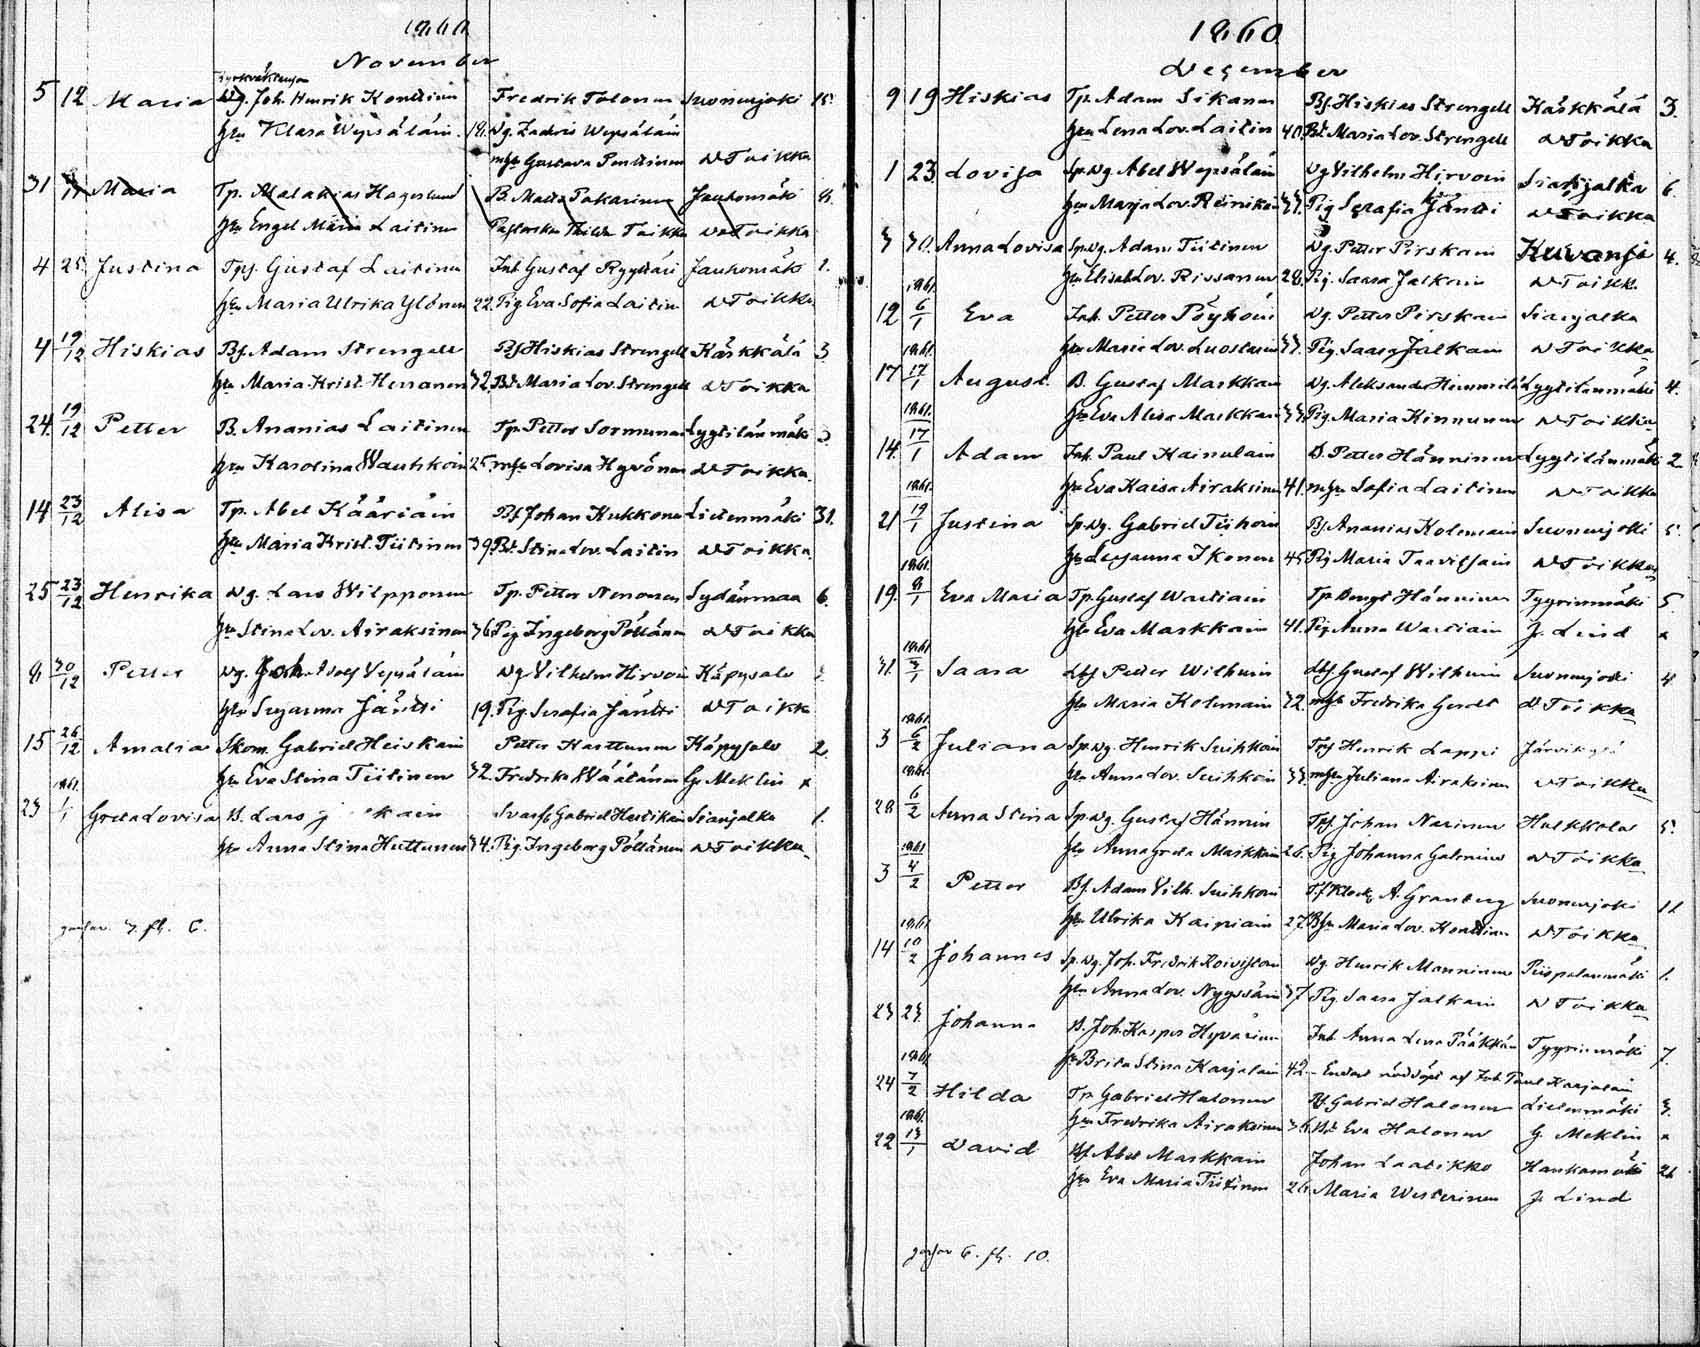 1860
November
5 12 Maria Dg. Joh. Henrik Konttinen Fredrik Tolonen Suonenjoki 15.
hu Klara Wepsäläin. 19. Dg. Zachris Wepsäläin
mhu Gustava Penttinen D Toikka
31 Maria Tp. Malakias Hagelund B. Matts Pakarinen Jauhomäki 8.
hu Engel Maria Laitinen Thilda Toikka D Toikka
4 25 Justina Tpf. Gustaf Laitinen Inh. Gustaf Ryytäri Jauhomäki 1.
hu Maria Ulrika Ylönen 22. Pig Eva Sofia Laitin D Toikka
4 19/12 Hiskias Bf. Adam Strengell Bf Hiskias Strengell Käskkälä 3
hu Maria Krist. Heranen 32. Bd Maria Lov. Strengell D Toikka
24. 19/12 Petter B. Ananias Laitinen Tp. Petter Sormunen Lyytilänmäki 3
hu Karolina Wauhkoin 25 mhu Lovisa Hyvönen D Toikka
14 23/12 Alisa Tp. Abel Kääriäin Bf Johan Kukkonen Lietenmäki 31.
hu Maria Krist. Tiitinen 39 Bd. Stina Lov. Laitin D Toikka
25 23/12 Henrika Dg. Lars Wilpponen Tp. Petter Nenonen Sydänmaa 6.
hu Stina Lov. Airaksinen 36 Pig Ingeborg Pöllänen D Toikka
8 30/12 Petter Dg. Joh. Adolf Vepsäläin Dg Vilhelm Hirvoin Käpysalo
hu Susanna Jäntti 19. Pig Serafia Jäntti D Toikka
15 26/12 Amalia Skom. Gabriel Heiskain Petter Karttunen Käpysalo 2
1861. hu Eva Stina Tiitinen 32. Fredrika Wäätänen G. Meklin x
23 1/1 Greta Lovisa B. Lars kain Gabriel Herttikain Sianjalka 1.
hu Anna Stina Huttunen 34. Pig Ingeborg Pöllänen D Toikka
7. fl. 6.
1860
December
9 19 Hiskias Tp. Adam Sikanen Bf Hiskias Strengell Käskkälä 3.
hu Lena Lov. Laitin 40. Bd Maria Lov. Strengell D Toikka
1 23. Lovisa Sp. Dg. Abel Wepsäläin Dg Vilhelm Hirvoin Sianjalka 6.
hu Marja Lov. Reinikain 37. Pig Serafia Jäntti D Toikka
3 30. Anna Lovisa Sp. Dg. Adam Tiitinen Dg. Petter Pirskain Kuvansi 4.
1861. hu Elisab. Lov. Rissanen 28. Pig. Saara Jalkain D Toikk.
12 6/1 Eva Inh. Petter Pöyhöin Dg. Petter Pirskain Sianjalka
1861. hu Maria Lov. Luostarin 37. Pig. Saara Jalkain D Toikka
17 17/1 August. B. Gustaf Markkain Dg. Aleksander Himmelä Lyytilänmäki 4.
1861. hu Eva Alisa Markkain 33. Pig. Maria Kinnunen D Toikka
14. 17/1 Adam Inh. Paul Kainulain B. Petter Hänninen Lyytilänmäki 2
1861. hu Eva Kaisa Airaksinen 41. mhu Sofia Laitinen D Toikka
21 19/1 Justina Sp. Dg. Gabriel Tiihoin Bf. Ananias Kolemain Suonenjoki 5
1861. hu Susanna Ikonen 45 Pig Maria Taavitsain D Toikka
19. 8/1 Eva Maria Tp. Gustaf Wartiain Tp. Bengt Hänninen Tyyrinmäki 5.
hu Eva Markkain 41. Pig. Anna Wartiain J. Lind x
1861
31. 3/1 Saara Lbf Petter Wilhuin Lbf. Gustaf Wilhuin Suonenjoki 4
1861. hu Maria Kolemain 22. mhu Fredrika Gerdt D Toikka
3 6/2 Juliana Sp. Dg. Henrik Suihkoin Tpf Henrik Lappi Järvikylä
1861. hu Anna Lov. Suihkoin 33. mhu Juliana Airaksinen D Toikka
28 6/2 Anna Stina Sp. Dg. Gustaf Hännin Tpf. Johan Narinen Hulkkola 5.
1861 hu Anna Greta Markkain 26. Pig Johanna Galenius D Toikka
3 4/2 Petter Bf. Adam Vilh. Suihkoin Klock. A. Granberg Suonenjoki 11
1861 hu Ulrika Kaipiain 27. Bhu Maria Lov. Konttinen D Toikka
14 10/2 Johannes Sp. Dg. Joh. Fredrik Koivistoin Dg. Henrik Manninen Piispalanmäki 1.
hu Anna Lov. Nyyssöin 37 Pig. Saara Jalkain D Toikka
23 23. Johanna B. Joh. Kasper Hyvärinen Inh. Anna Lena Pääkkön Tyyrinmäki 7.
1861 hu Brita Stina Karjalain 42. – Endast nöddöpt af Inh. Paul Karjalain
24 7/2 Hilda Tp. Gabriel Halonen Bf. Gabriel Halonen Lietenmäki 3.
1861. hu Fredrika Airaksinen 36. Bd Eva Halonen G. Meklin x
22 13/1 David Bf. Abel Markkain Johan Laatikko Hankamäki 26
hu Eva Maria Tiitinen 26. Maria Westerinen J. Lind
6. fl. 10.